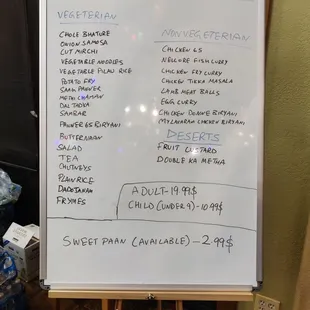 VEGETERIAN
CHOLE BHATURE
ONION SAMOSA
CUT MIRCHI
VEGETABLE NOODLES
VEGETABLE PULAU RICE
POTATO FRY
SAAG PANNER
METHI CHAMAN
DAL TADKA
SAMBAR
PANNER 65 BIRYANI
BUTTERNAAN
SALAD
TEA
CHUTNEYS
PLAIN RICE
DADOJANAM
FRYMES
NONVEGETERIAN
CHICKEN 65
NELLORE FISH CURRY
CHICKEN FRY CURRY
CHICKEN TIKKA MASALA
LAMB MEAT BALLS
EGG CURRY
CHICKEN DONNE BIRYANI
MYLAVARAM CHICKEN BIRYANI
DESERTS
FRUIT CUSTARD
DOUBLE KA METHA
ADULT-19.99$
CHILD (UNDER 9)-10.99$
SWEET PAAN (AVAILABLE) - 2.99$